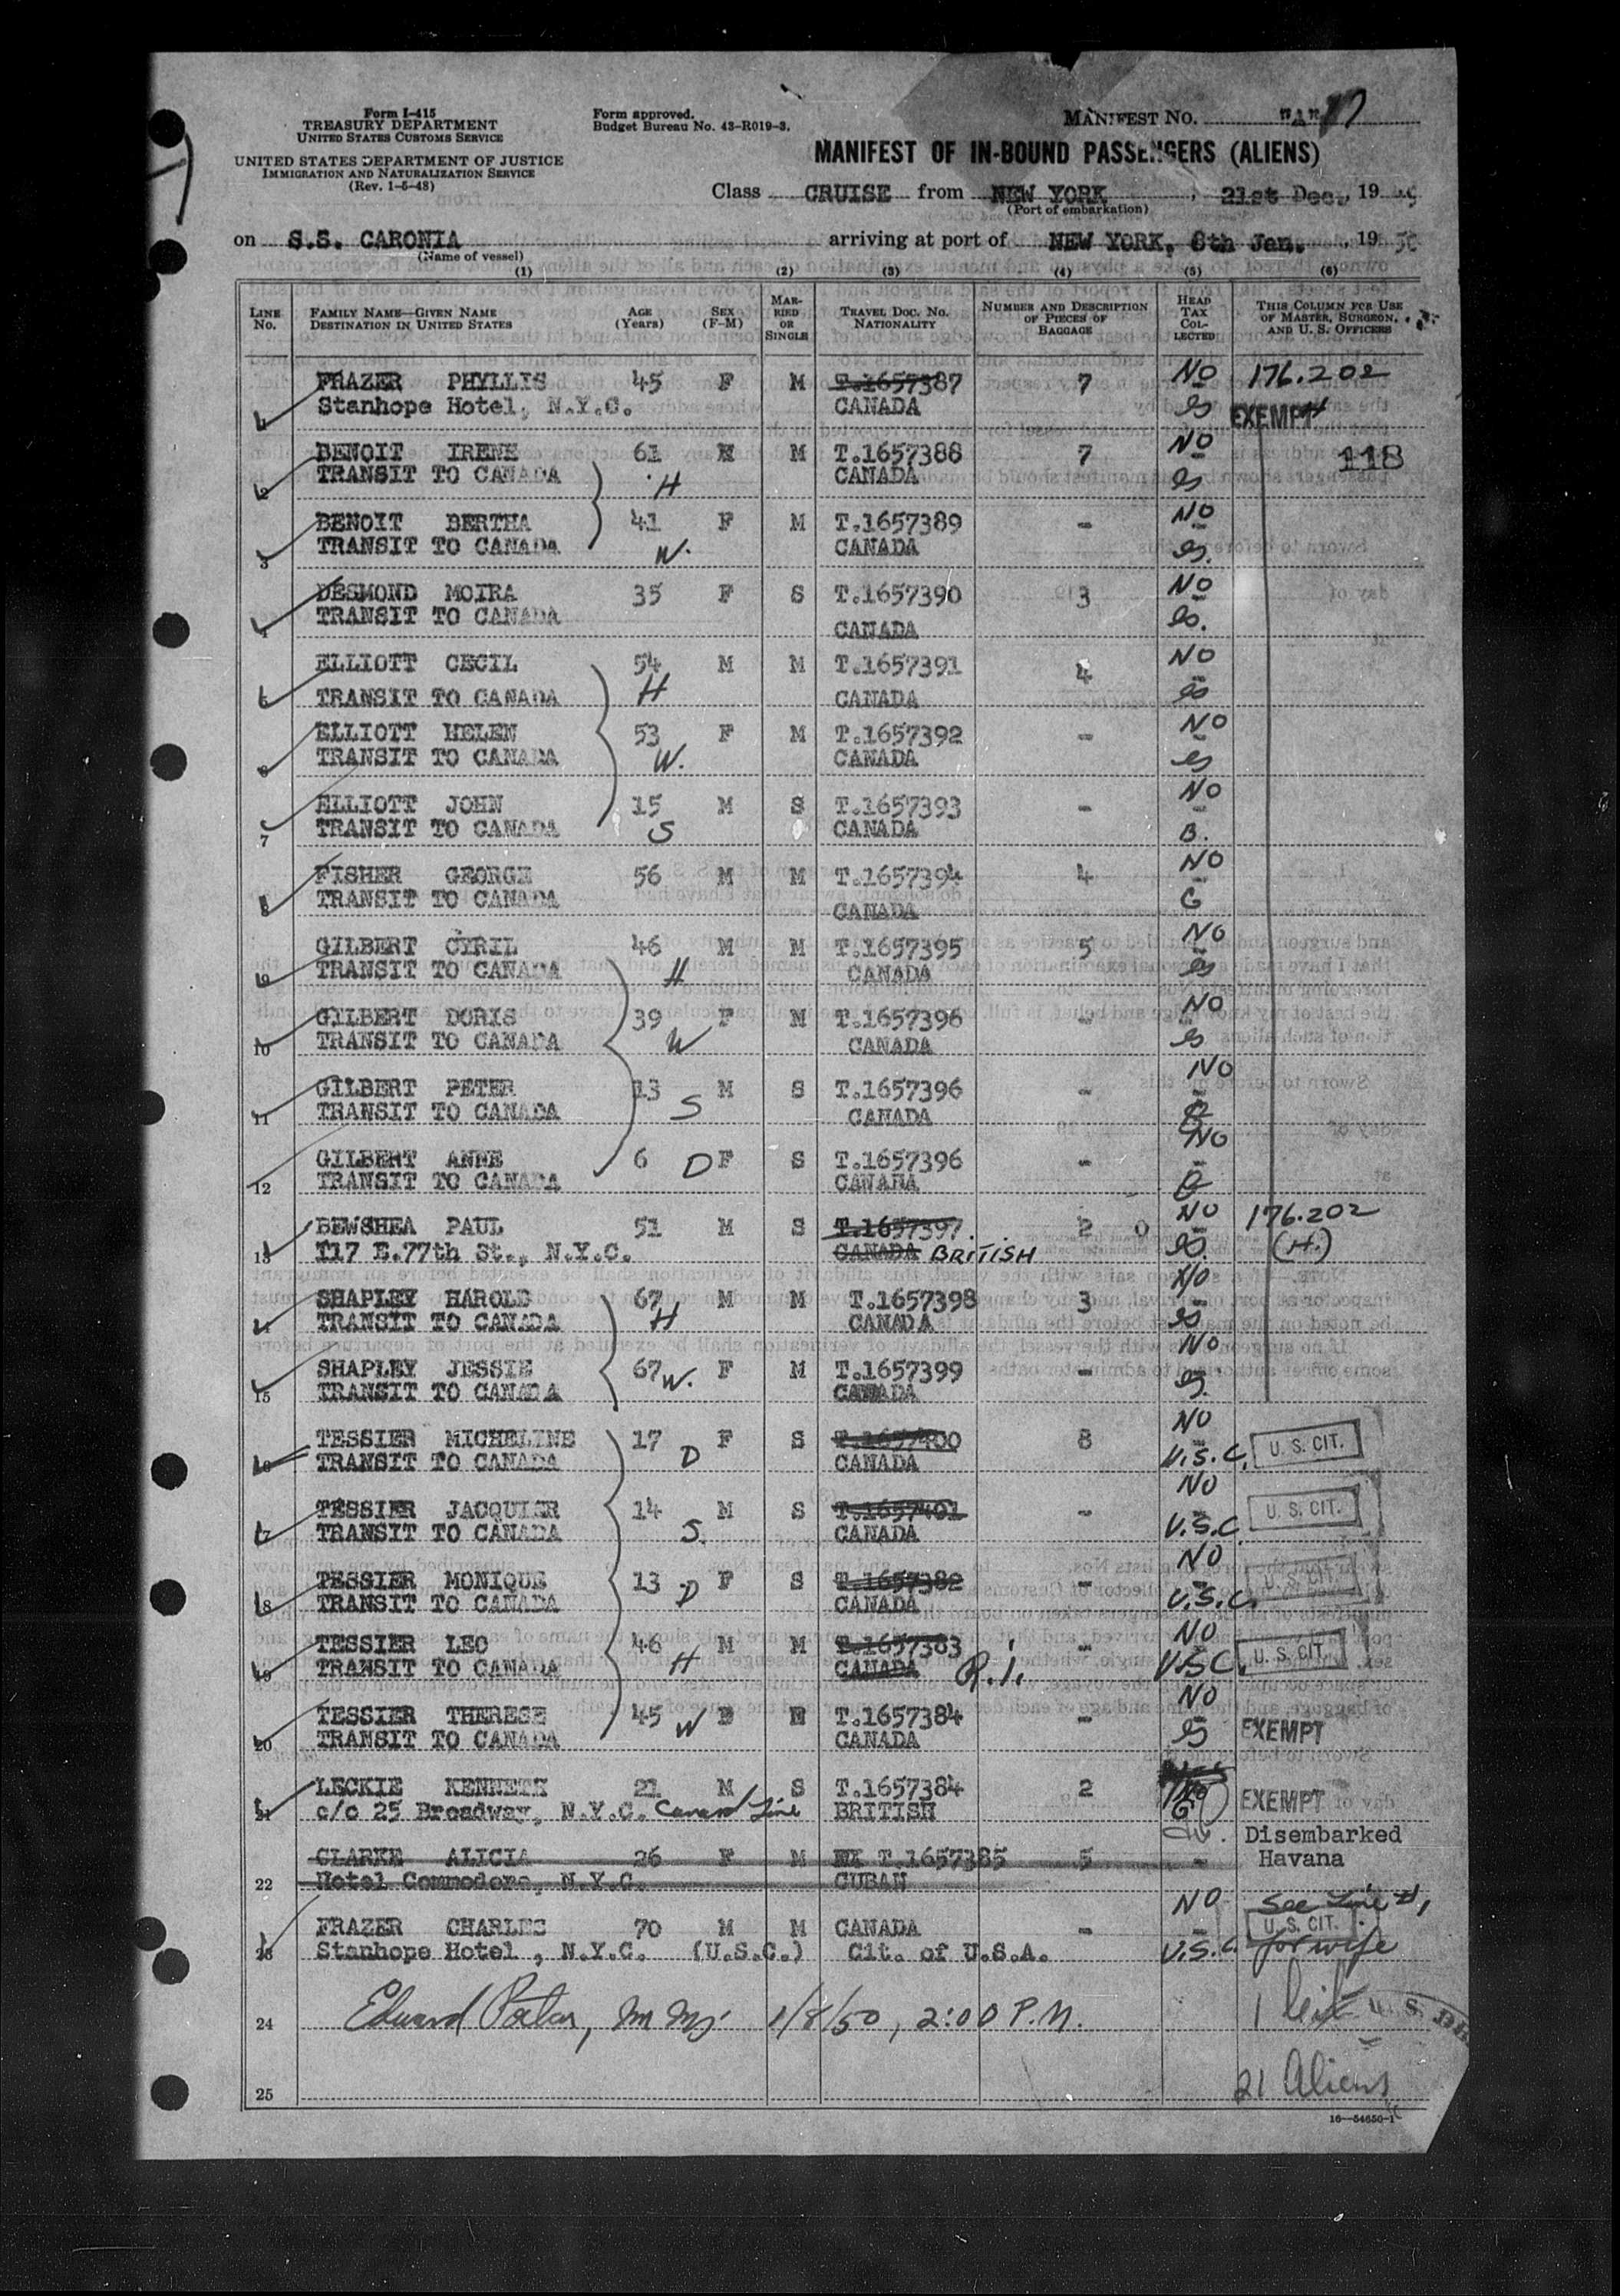 Form I-415
TREASURY DEPARTMENT
UNITED STATES CUSTOMS SERVICE
UNITED STATES DEPARTMENT OF JUSTICE
IMMIGRATION AND NATURALIZATION SERVICE
(Rev. 1-5-48)
Form approved.
Budget Bureau No. 43-R019-3.
MANIFEST NO. 17
MANIFEST OF IN-BOUND PASSENGERS (ALIENS)
Class CRUISE from NEW YORK, 21st Dec., 19 49
(Port of embarkation)
on S.S. CARONIA arriving at port of NEW YORK, 8th Jan., 19 50
(Name of vessel)
(1) (2) (3) (4) (5) (6)
LINE NO. FAMILY NAME—GIVEN NAME DESTINATION IN UNITED STATES AGE (YEARS) SEX (F-M) MARRIED OR SINGLE TRAVEL DOC. NO. NATIONALITY NUMBER AND DESCRIPTION OF PIECES OF BAGGAGE HEAD TAX COLLECTED THIS COLUMN FOR USE OF MASTER, SURGEON, AND U. S. OFFICERS
FRAZER PHYLLIS 45 F M T.1657387 7 NO 176.202
1 Stanhope Hotel, N.Y.C. CANADA es EXEMPT
BENOIT IRENE 61 M M T.1657388 7 NO 118
2 TRANSIT TO CANADA H CANADA es
BENOIT BERTHA 41 F M T.1657389 - NO
3 TRANSIT TO CANADA W. CANADA es.
DESMOND MOIRA 35 F S T.1657390 3 NO
4 TRANSIT TO CANADA CANADA es.
ELLIOTT CECIL 54 M M T.1657391 4 NO
5 TRANSIT TO CANADA H CANADA es
ELLIOTT HELEN 53 F M T.1657392 - NO
6 TRANSIT TO CANADA W. CANADA es
ELLIOTT JOHN 15 M S T.1657393 - NO
7 TRANSIT TO CANADA S CANADA B.
FISHER GEORGE 56 M M T.1657394 4 NO
8 TRANSIT TO CANADA CANADA G
GILBERT CYRIL 46 M M T.1657395 5 NO
9 TRANSIT TO CANADA H CANADA es
GILBERT DORIS 39 F M T.1657396 - NO
10 TRANSIT TO CANADA W CANADA es
GILBERT PETER 13 M S T.1657396 - NO
11 TRANSIT TO CANADA S CANADA
GILBERT ANNE 6 D F S T.1657396 - NO
12 TRANSIT TO CANADA CANAHA
BEWSHEA PAUL 51 M S T.1657397 2 0 NO 176.202
13 117 E.77th St., N.Y.C. CANADA BRITISH es. (H.)
SHAPLEY HAROLD 67 M M T.1657398 3 NO
14 TRANSIT TO CANADA H CANADA es
SHAPLEY JESSIE 67 W. F M T.1657399 - NO
15 TRANSIT TO CANADA CANADA es.
TESSIER MICHELINE 17 F S T.1657400 8 NO
16 TRANSIT TO CANADA D CANADA U.S.C. U. S. CIT.
TESSIER JACQUIER 14 M S T.1657401 - NO
17 TRANSIT TO CANADA S. CANADA U.S.C U. S. CIT.
TESSIER MONIQUE 13 F S T.1657382 - NO
18 TRANSIT TO CANADA D CANADA U.S.C. U. S. CIT.
TESSIER LEO 46 M M T.1657383 - NO
19 TRANSIT TO CANADA H CANADA R.I. U.S.C. U. S. CIT.
TESSIER THERESE 45 W M T.1657384 - NO
20 TRANSIT TO CANADA CANADA es EXEMPT
LECKIE KENNETH 21 M S T.1657384 2 NO
21 c/o 25 Broadway, N.Y.C. Cunard Line BRITISH G EXEMPT
CLARKE ALICIA 26 F M T.1657385 5 - Disembarked
22 Hotel Commodore, N.Y.C. CUBAN Havana
FRAZER CHARLES 70 M M CANADA - NO See Line #1
23 Stanhope Hotel, N.Y.C. (U.S.C.) Cit. of U.S.A. U.S.C. U. S. CIT. for wife
24 Edward 1/8/50, 2:00 P.M. 1 U. S.
25 21 Aliens
16—54650-1